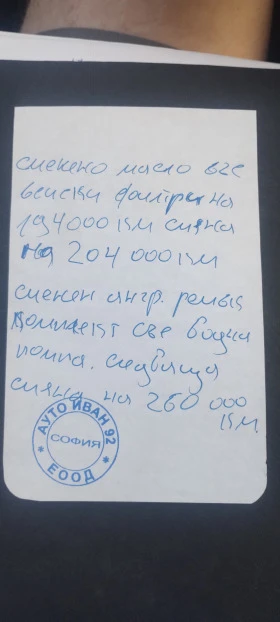 сменено масло все
венски филтри на
194000 км смяна
на 204000 км
сменен ангр. ремък
комплект све водна
помпа. следваща
смяна на 260 000
км
АУТО ИВАН 92
СОФИЯ
ЕООД